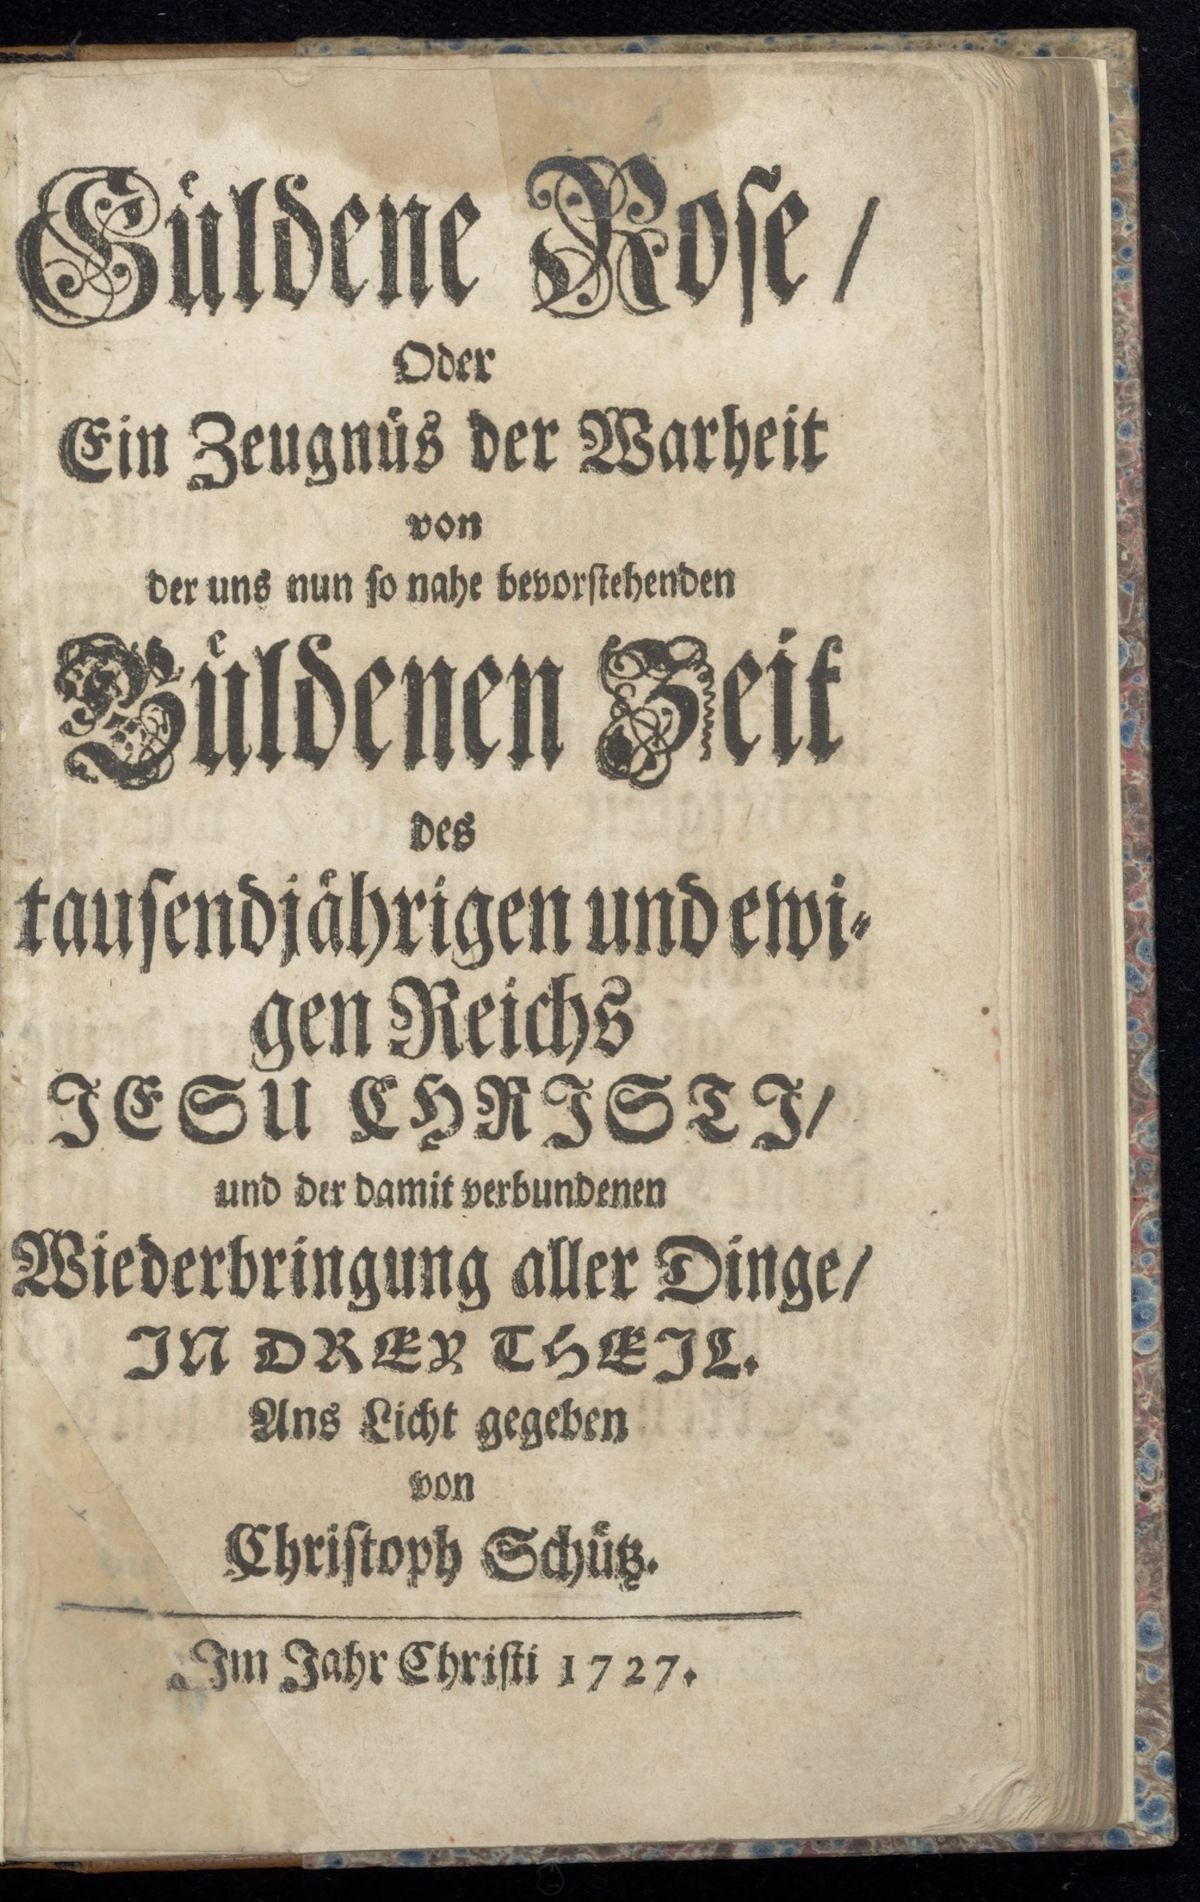 Guͤldene Rose/
Oder
Ein Zeugnuͤs der Warheit
von
der uns nun so nahe bevorstehenden
Guͤldenen Zeit
des
tausendjaͤhrigen und ewi-
gen Reichs
JESU CHRISTI/
und der damit verbundenen
Wiederbringung aller Dinge/
IN DREY THEIL.
Ans Licht gegeben
von
Christoph Schuͤtz.
Im Jahr Christi 1727.